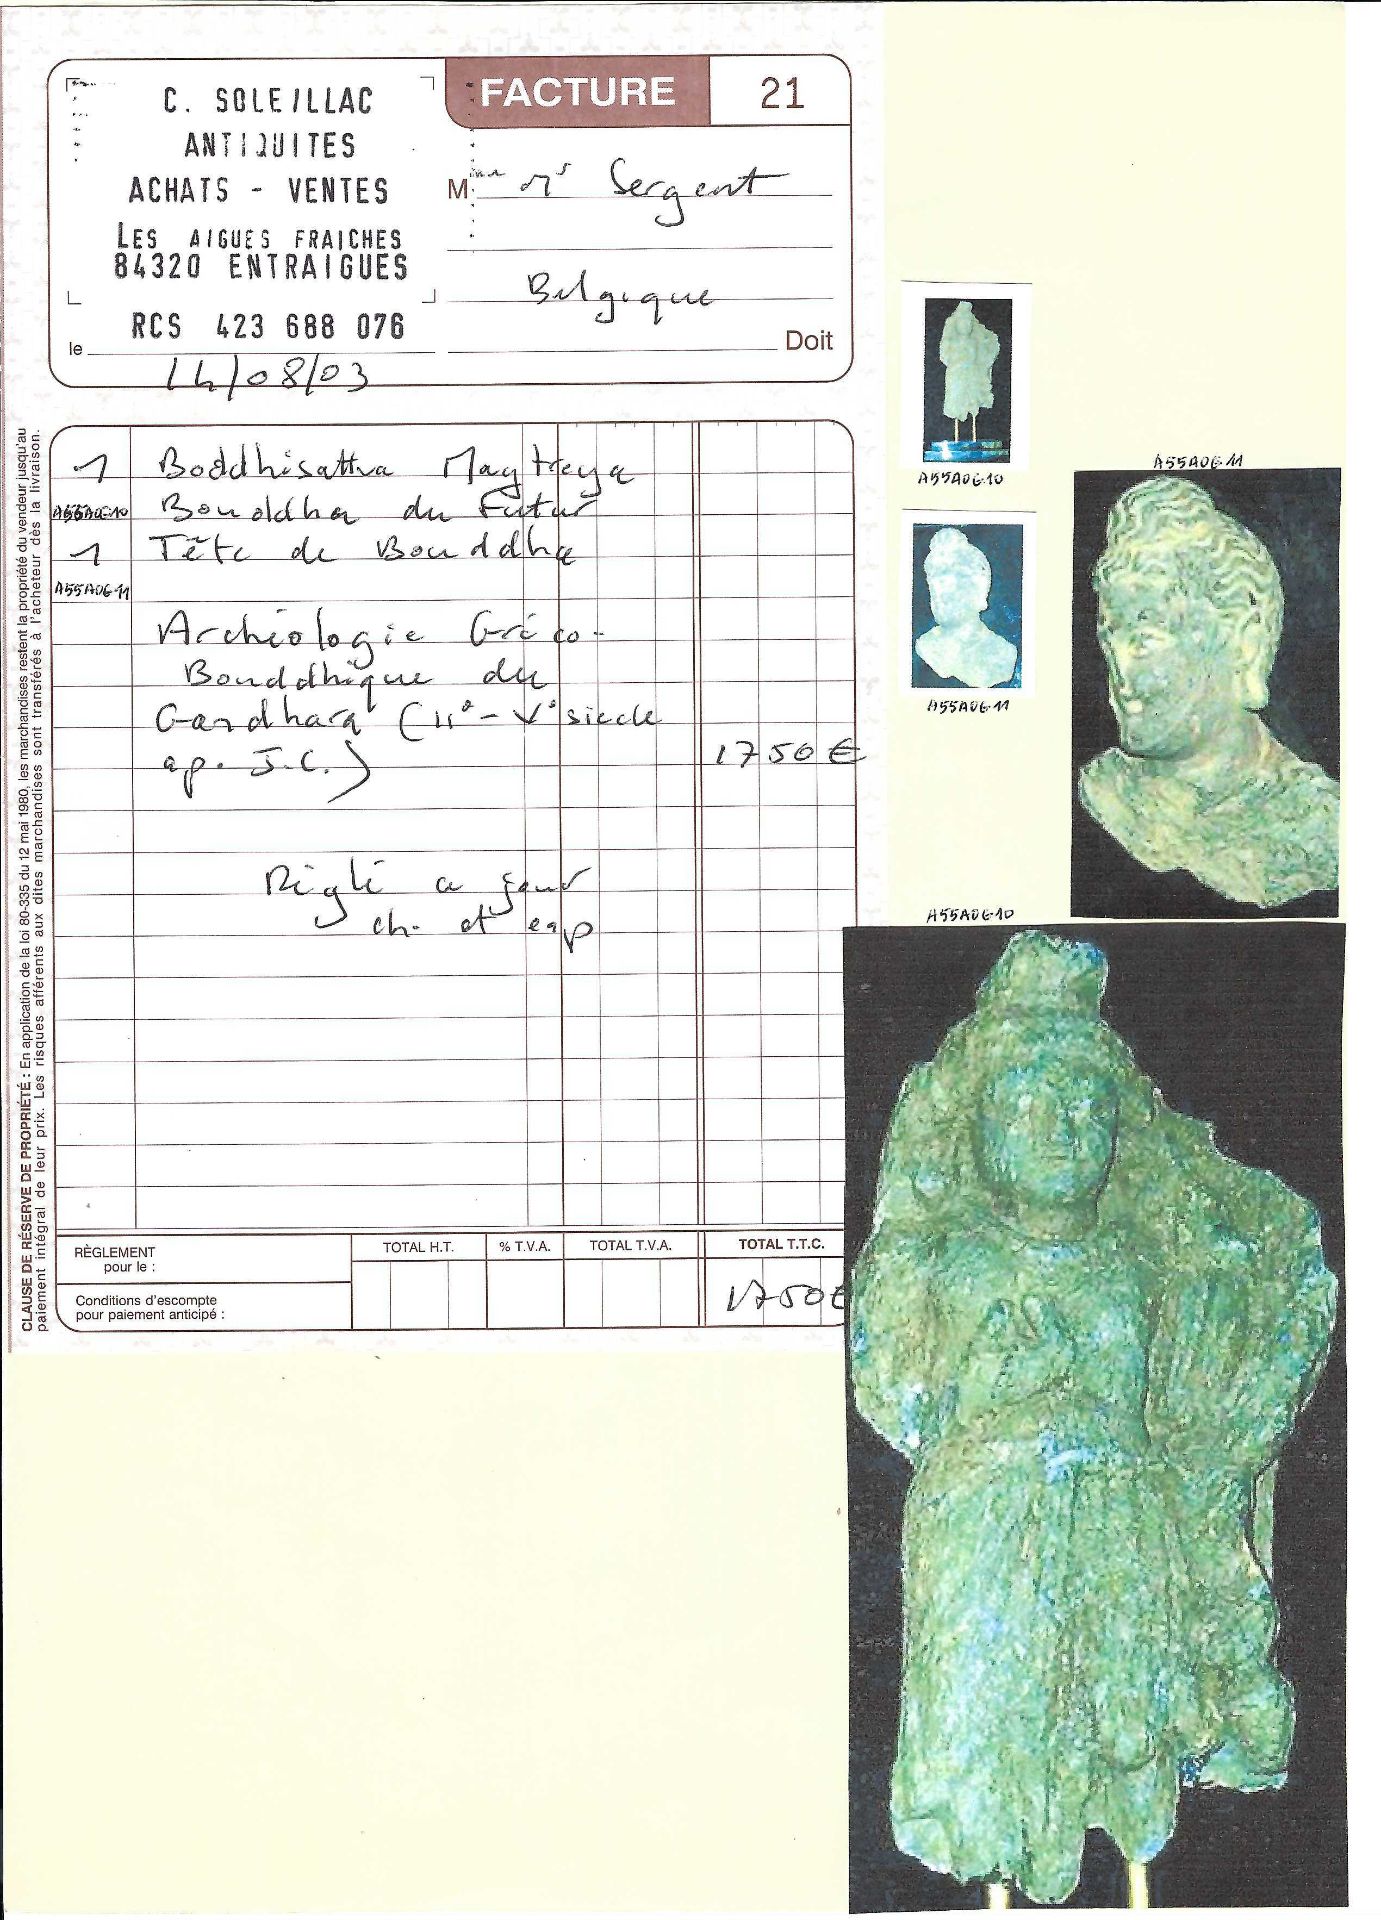 C. SOLEILLAC
ANTIQUITES
ACHATS - VENTES
LES AIGUES FRAICHES
84320 ENTRAIGUES
RCS 423 688 076
le 14/08/03
FACTURE 21
M. Sergent
Belgique
Doit
1 Boddhisattva Maytreya
A55A06-10 Bouddha du Futur
1 Tête de Bouddha
A55A06-11
Archéologie Gréco-
Bouddhique du
Gandhara (II° - V° siecle
ap. J.C.) 1750 €
Réglé a jour
ch. et esp
RÈGLEMENT
pour le :
Conditions d'escompte
pour paiement anticipé :
TOTAL H.T. % T.V.A. TOTAL T.V.A. TOTAL T.T.C.
1750€
CLAUSE DE RÉSERVE DE PROPRIÉTÉ : En application de la loi 80-335 du 12 mai 1980, les marchandises restent la propriété du vendeur jusqu'au
paiement intégral de leur prix. Les risques afférents aux dites marchandises sont transférés à l'acheteur dès la livraison.
A55A06-10
A55A06-11
A55A06-11
A55A06-10